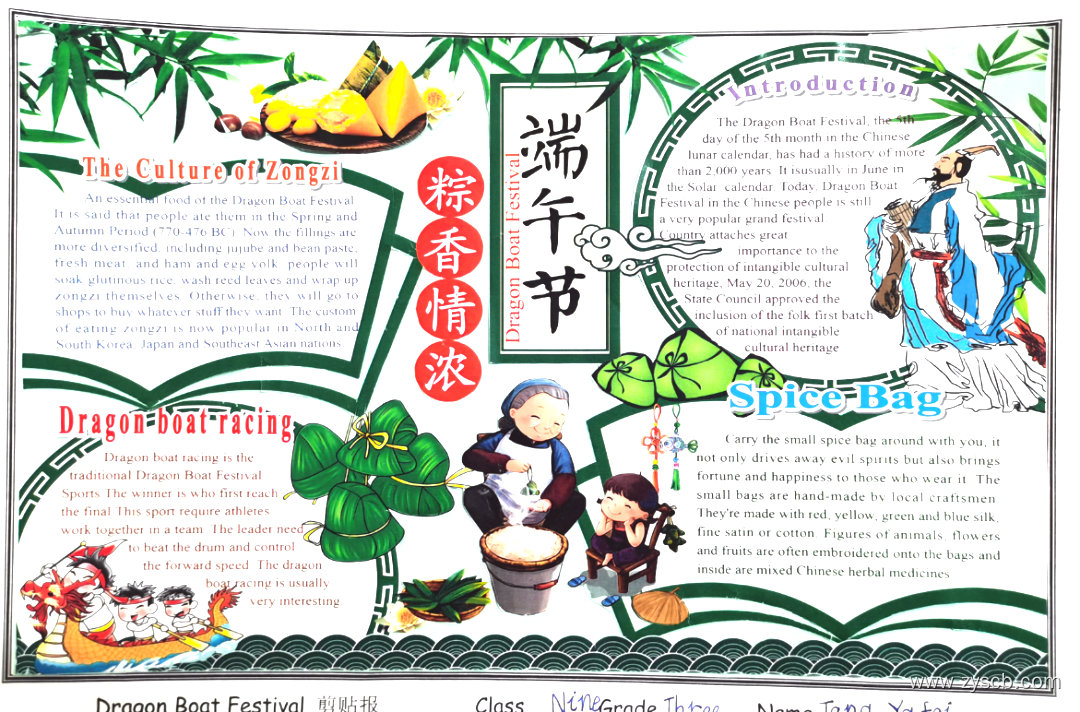 The Culture of Zongzi
An essential food of the Dragon Boat Festival
It is said that people ate them in the Spring and
Autumn Period (770-476 BC). Now the fillings are
more diversified, including jujube and bean paste,
fresh meat, and ham and egg yolk. people will
soak glutinous rice, wash reed leaves and wrap up
zongzi themselves. Otherwise, they will go to
shops to buy whatever stuff they want. The custom
of eating zongzi is now popular in North and
South Korea, Japan and Southeast Asian nations
粽香情浓
端午节
Dragon Boat Festival
Introduction
The Dragon Boat Festival, the 5th
day of the 5th month in the Chinese
lunar calendar, has had a history of more
than 2,000 years. It isusually in June in
the Solar calendar. Today, Dragon Boat
Festival in the Chinese people is still
a very popular grand festival
Country attaches great
importance to the
protection of intangible cultural
heritage, May 20, 2006, the
State Council approved the
inclusion of the folk first batch
of national intangible
cultural heritage
Dragon boat racing
Dragon boat racing is the
traditional Dragon Boat Festival
Sports. The winner is who first reach
the final. This sport require athletes
work together in a team. The leader need
to beat the drum and control
the forward speed. The dragon
boat racing is usually
very interesting
Spice Bag
Carry the small spice bag around with you, it
not only drives away evil spirits but also brings
fortune and happiness to those who wear it. The
small bags are hand-made by local craftsmen.
They're made with red, yellow, green and blue silk,
fine satin or cotton. Figures of animals, flowers
and fruits are often embroidered onto the bags and
inside are mixed Chinese herbal medicines
www.zyscb.com
Dragon Boat Festival 剪贴报 Class Nine Grade Three Name Tang